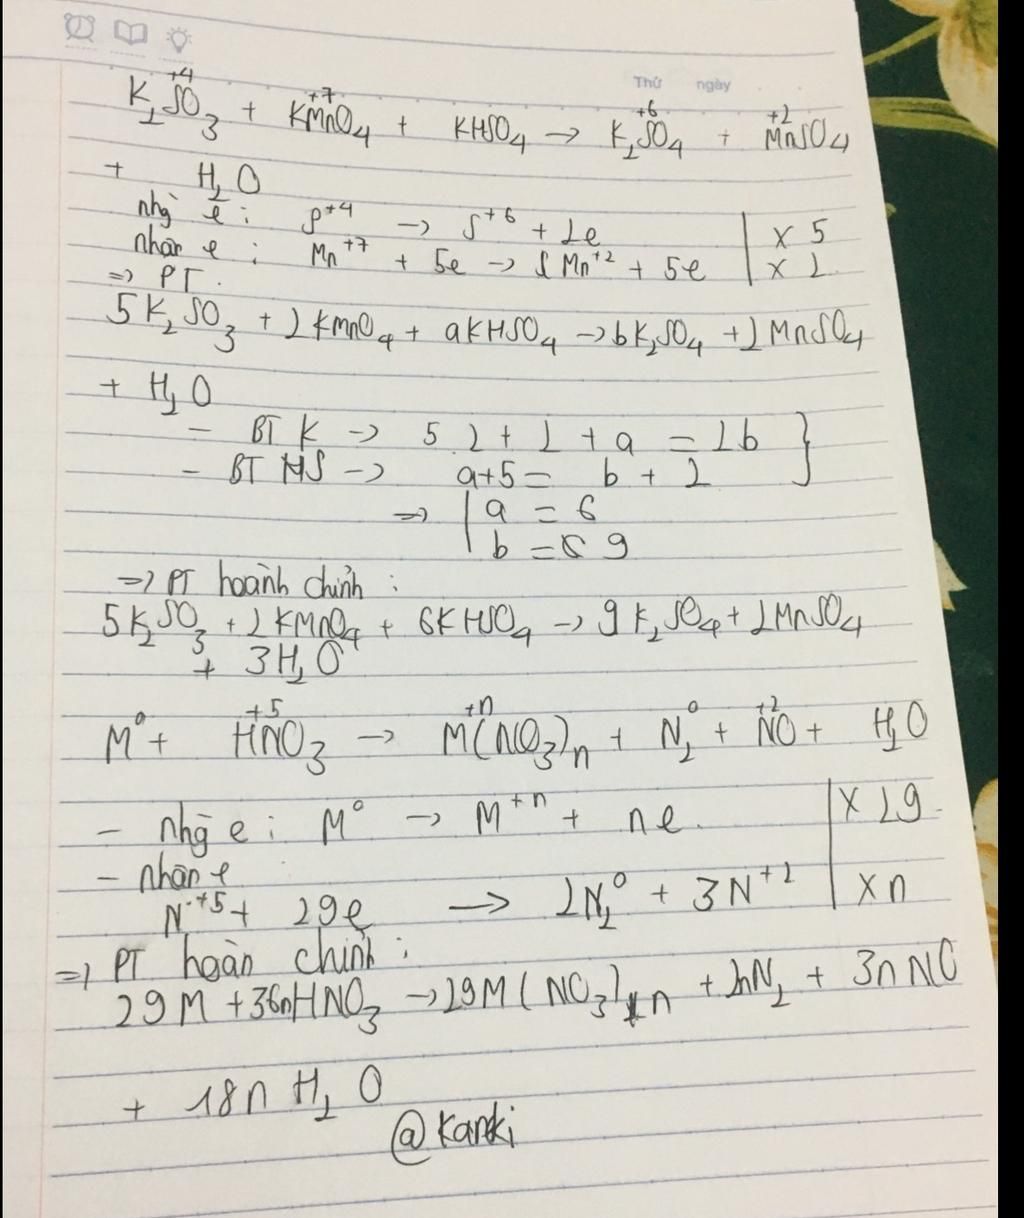 Thứ ngày
+4 +7 +6 +2
K₂SO₃ + KMnO₄ + KHSO₄ → K₂SO₄ + MnSO₄
+ H₂O
nhg e : S⁺⁴ → S⁺⁶ + 2e | x 5
nhận e : Mn⁺⁷ + 5e → Mn⁺² + 5e | x 2
=> PT.
5K₂SO₃ + 2KMnO₄ + aKHSO₄ → bK₂SO₄ + 2MnSO₄
+ H₂O
- BT K → 5.2 + 2 + a = 2b }
- BT NS → a+5 = b + 2
=> | a = 6
b = 9
=> PT hoành chỉnh :
5K₂SO₃ + 2KMnO₄ + 6KHSO₄ → 9K₂SO₄ + 2MnSO₄
+ 3H₂O
+5 +n 0 +2
M⁰ + HNO₃ → M(NO₃)n + N₂ + NO + H₂O
- nhg e : M⁰ → M⁺ⁿ + ne. | x 29
- nhận e
N⁺⁵ + 29e → 2N₂⁰ + 3N⁺² | x n
=> PT hoàn chỉnh :
29M + 36nHNO₃ → 29M(NO₃)n + 2nN₂ + 3nNO
+ 18n H₂O
@Kanki